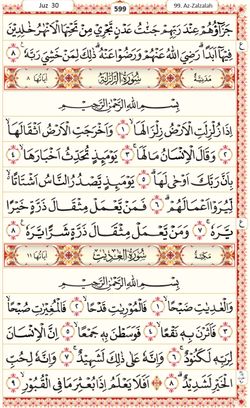 Juz 30 599 99. Az-Zalzalah
جَزَآؤُهُمْ عِنْدَ رَبِّهِمْ جَنّٰتُ عَدْنٍ تَجْرِيْ مِنْ تَحْتِهَا الْاَنْهٰرُ خٰلِدِيْنَ
فِيْهَآ اَبَدًا ۗ رَضِيَ اللّٰهُ عَنْهُمْ وَرَضُوْا عَنْهُ ۗ ذٰلِكَ لِمَنْ خَشِيَ رَبَّهٗ ࣖ ٨
مَدَنِيَّة سُوْرَةُ الزَّلْزَلَة اٰيَاتُهَا ٨
بِسْمِ اللّٰهِ الرَّحْمٰنِ الرَّحِيْمِ
اِذَا زُلْزِلَتِ الْاَرْضُ زِلْزَالَهَا ۙ ١ وَاَخْرَجَتِ الْاَرْضُ اَثْقَالَهَا ۙ
٢ وَقَالَ الْاِنْسَانُ مَا لَهَا ۚ ٣ يَوْمَىِٕذٍ تُحَدِّثُ اَخْبَارَهَا ۙ ٤
بِاَنَّ رَبَّكَ اَوْحٰى لَهَا ۗ ٥ يَوْمَىِٕذٍ يَّصْدُرُ النَّاسُ اَشْتَاتًا ەۙ
لِّيُرَوْا اَعْمَالَهُمْ ۗ ٦ فَمَنْ يَّعْمَلْ مِثْقَالَ ذَرَّةٍ خَيْرًا
يَّرَهٗ ۚ ٧ وَمَنْ يَّعْمَلْ مِثْقَالَ ذَرَّةٍ شَرًّا يَّرَهٗ ࣖ ٨
مَكِّيَّة سُوْرَةُ الْعٰدِيٰت اٰيَاتُهَا ١١
بِسْمِ اللّٰهِ الرَّحْمٰنِ الرَّحِيْمِ
وَالْعٰدِيٰتِ ضَبْحًا ۙ ١ فَالْمُوْرِيٰتِ قَدْحًا ۙ ٢ فَالْمُغِيْرٰتِ صُبْحًا ۙ
٣ فَاَثَرْنَ بِهٖ نَقْعًا ۙ ٤ فَوَسَطْنَ بِهٖ جَمْعًا ۙ ٥ اِنَّ الْاِنْسَانَ
لِرَبِّهٖ لَكَنُوْدٌ ۚ ٦ وَاِنَّهٗ عَلٰى ذٰلِكَ لَشَهِيْدٌ ۚ ٧ وَاِنَّهٗ لِحُبِّ
الْخَيْرِ لَشَدِيْدٌ ۗ ٨ اَفَلَا يَعْلَمُ اِذَا بُعْثِرَ مَا فِى الْقُبُوْرِ ۙ ٩